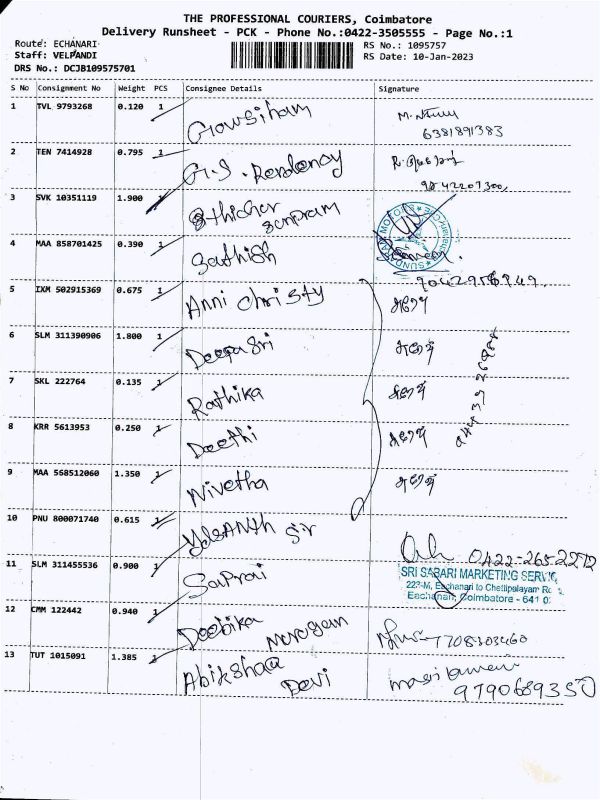 THE PROFESSIONAL COURIERS, Coimbatore
Delivery Runsheet - PCK - Phone No.:0422-3505555 - Page No.:1
Route: ECHANARI
RS No.: 1095757
Staff: VELPANDI
RS Date: 10-Jan-2023
DRS No.: DCJB109575701
S No Consignment No Weight PCS Consignee Details Signature
1 TVL 9793268 0.120 1 Gowsiham
6381891383
2 TEN 7414928 0.795 1 G.S. Residency
3 SVK 10351119 1.900
SUNDARAM MOTORS
4 MAA 858701425 0.390 1 Sathish
5 IXM 502915369 0.675 1 Anni Christy
6 SLM 311390906 1.800 1 Deepa Sri
7 SKL 222764 0.135 1 Rathika
8 KRR 5613953 0.250 1 Deethi
9 MAA 568512060 1.350 1 Nivetha
10 PNU 800071740 0.615 1 Sir
0422-265-2272
11 SLM 311455536 0.900 1
SRI SABARI MARKETING
223-M, Eachanari to Chettipalayam
Eachanari, Coimbatore - 641 0
12 CMM 122442 0.940 1 Deebika Murugan
7708303460
13 TUT 1015091 1.385 1 Abikshaa Devi
9790689350